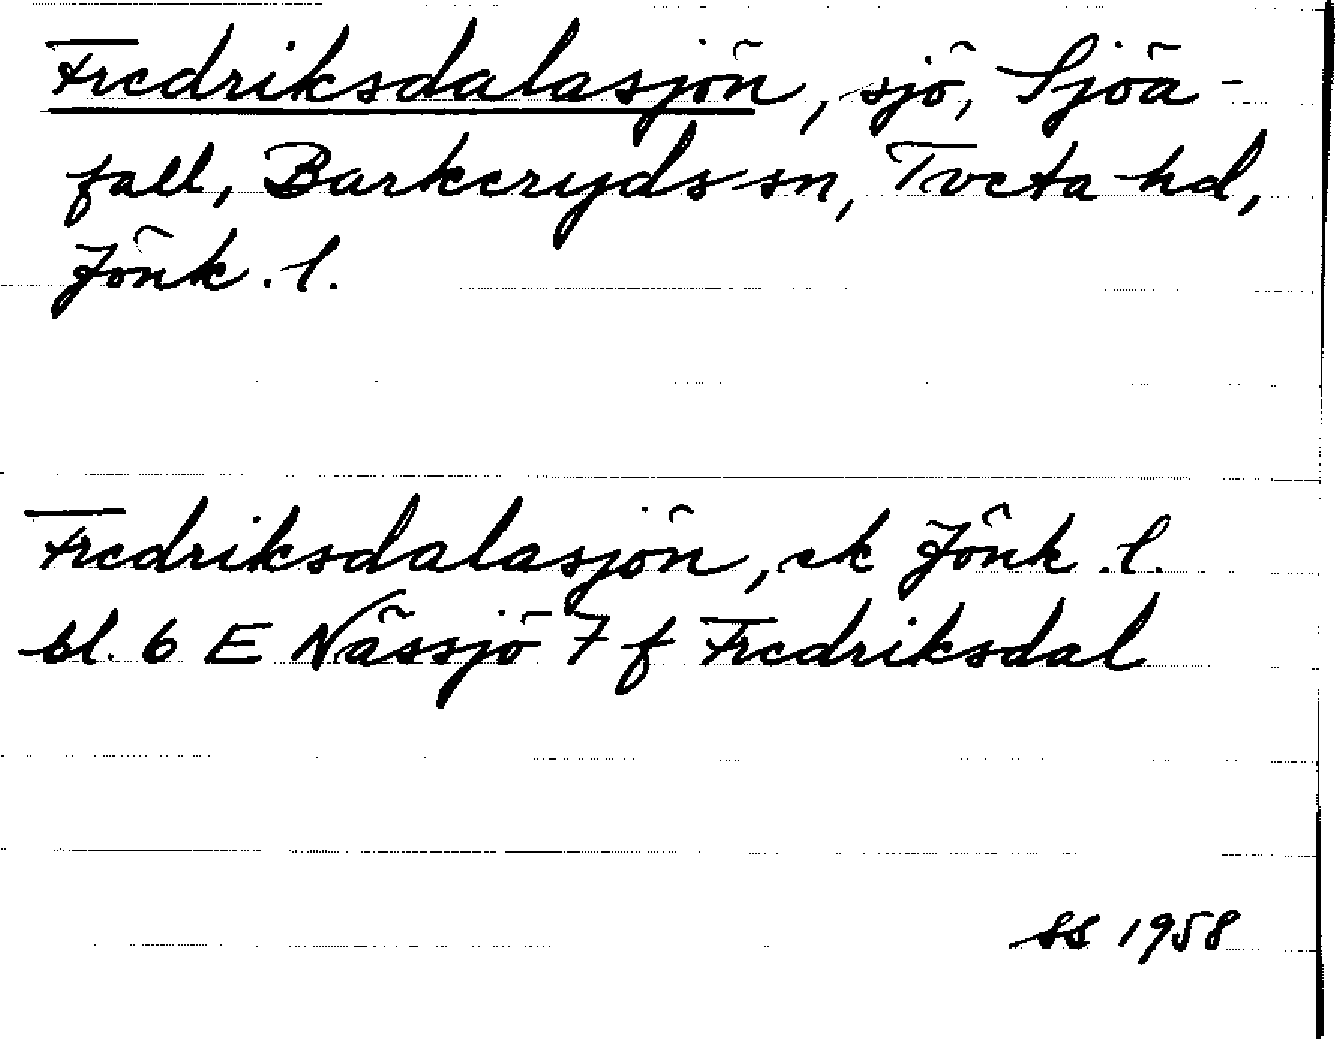 Fredriksdalasjön, sjö, Sjöa-
fall, Barkeryds sn, Tveta hd,
Jönk. l.
Fredriksdalasjön, ek Jönk. l.
bl. 6 E Nässjö 7 f Fredriksdal
SS 1958